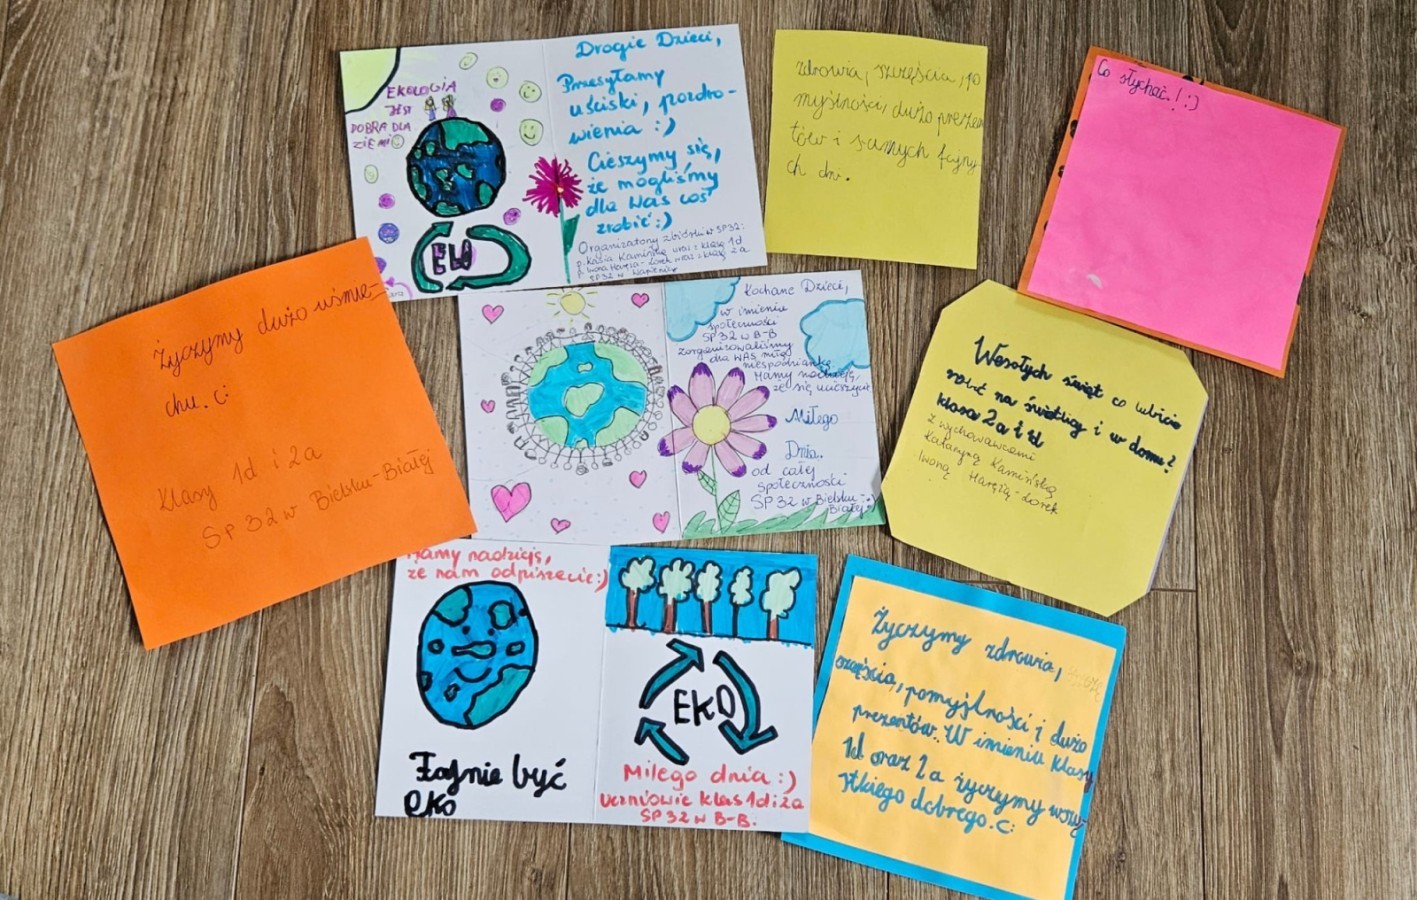 EKOLOGIA
JEST
DOBRA DLA
ZIEMI
EKO
Drogie Dzieci,
Przesyłamy
uściski, pozdro-
wienia :)
Cieszymy się,
że mogliśmy
dla Was coś
zrobić :)
Organizatorzy zbiórki w SP32:
p. Kasia Kamińska wraz z klasą 1d
p. Iwona Haręża-Żorek wraz z klasą 2a
SP32 w
zdrowia, szczęścia, po
myślności, dużo prezen
tów i samych fajny
ch dni.
Co słychać! :)
Życzymy dużo uśmie-
chu. C:
Klasy 1d i 2a
SP 32 w Bielsku-Białej
Kochane Dzieci,
w imieniu
społeczności
SP 32 w B-B
zorganizowaliśmy
dla WAS miłą
niespodziankę
Mamy nadzieję,
że się ucieszycie
Miłego
Dnia.
od całej
Społeczności
SP 32 w Bielsku-:)
Białej
Wesołych świąt co lubicie
robić na świetlicy i w domu?
klasa 2a i 1d
z wychowawcami
Katarzyną Kamińską
Iwoną Harężą-Żorek
Mamy nadzieję,
że nam odpiszecie:)
Fajnie być
eko
EKO
Miłego dnia :)
Uczniowie klas 1d i 2a
SP 32 w B-B.
Życzymy zdrowia,
szczęścia, pomyślności i dużo
prezentów. W imieniu klasy
1d oraz 2a życzymy wszy-
stkiego dobrego. C: